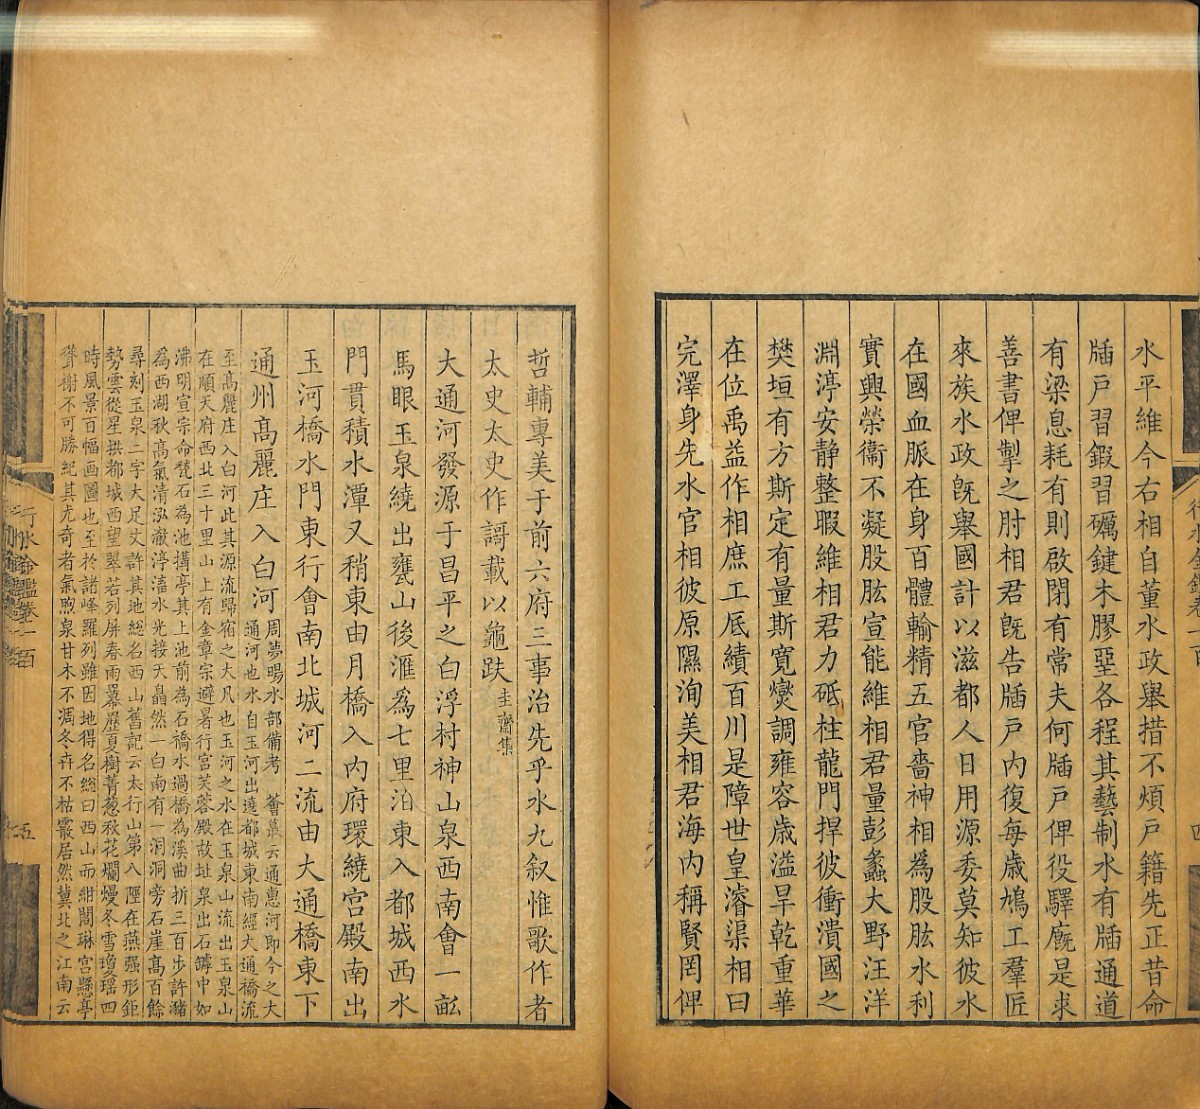 水平維今右相自董水政舉措不煩戸籍先正昔命
牐戸習鍜習礪鍵木膠堊各程其藝制水有牐通道
有梁息耗有則啟閉有常夫何牐戸俾役驛廐是求
善書俾掣之肘相君旣告牐戸內復每歳鳩工羣匠
來族水政旣舉國計以滋都人日用源委莫知彼水
在國血脈在身百體輸精五官嗇神相為股肱水利
實興榮衞不凝股肱宣能維相君量彭蠡大野汪洋
淵渟安靜整暇維相君力砥柱龍門捍彼衝潰國之
樊垣有方斯定有量斯寛爕調雍容歳溢旱乾重華
在位禹益作相庶工厎績百川是障世皇濬渠相曰
完澤身先水官相彼原隰洵美相君海內稱賢罔俾
哲輔專美于前六府三事治先乎水九叙惟歌作者
太史太史作謌載以龜趺圭齋集
大通河發源于昌平之白浮村神山泉西南會一畝
馬眼玉泉繞出甕山後滙為七里泊東入都城西水
門貫積水潭又稍東由月橋入內府環繞宮殿南出
玉河橋水門東行會南北城河二流由大通橋東下
通州高麗庄入白河周夢暘水部備考 薈蕞云通惠河即今之大
通河也水自玉河出遶都城東南經大通橋流
至高麗庄入白河此其源流歸宿之大凡也玉河之水在玉泉山流出玉泉山
在順天府西北三十里山上有金章宗避暑行宮芙蓉殿故址泉出石罅中如
沸明宣宗命甃石為池搆亭其上池前為石橋水過橋為溪曲折三百步許豬
為西湖秋高氣清泓澈渟滀水光接天皛然一白南有一洞洞旁石崖高百餘
尋刻玉泉二字大足丈許其地総名西山舊記云太行山第八陘在燕强形鉅
勢雲從星拱都城西望翠若列屏春雨羃歷夏樹菁葱秋花爛熳冬雪瓊瑶四
時風景百幅画圖也至於諸峰羅列雖因地得名総曰西山而紺闍琳宮懸亭
聳榭不可勝紀其尤奇者氣煦泉甘木不凋冬卉不枯霰居然冀北之江南云
行水金鑑卷一百
五